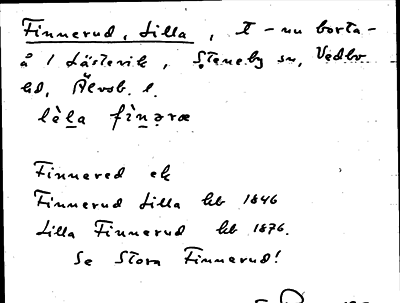 Finnerud, Lilla, t - nu borta -
å / Lästevik, Steneby sn, Vedbo
hd, Älvsb. l.
lèla fìnəræ
Finnered ek
Finnerud Lilla hb 1846
Lilla Finnerud hb 1876.
Se Stora Finnerud!